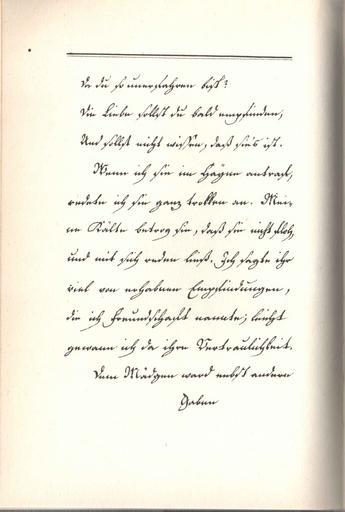 Da du so unerfahren bist?
Die Liebe sollst du bald empfinden,
Und sollst nicht wissen, daß sie's ist.
Wenn ich sie im Hayne antraf,
redete ich sie ganz trokken an. Mei-
ne Kälte betrog sie, daß sie nicht floh,
und mit sich reden ließ. Ich sagte ihr
viel von erhabnen Empfindungen,
die ich Freundschafft nannte; leicht
gewann ich da ihre Vertraulichkeit.
Dem Mädgen ward nebst andern
Gaben